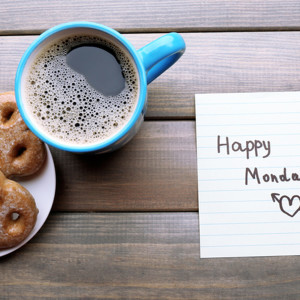 Happy
Monda